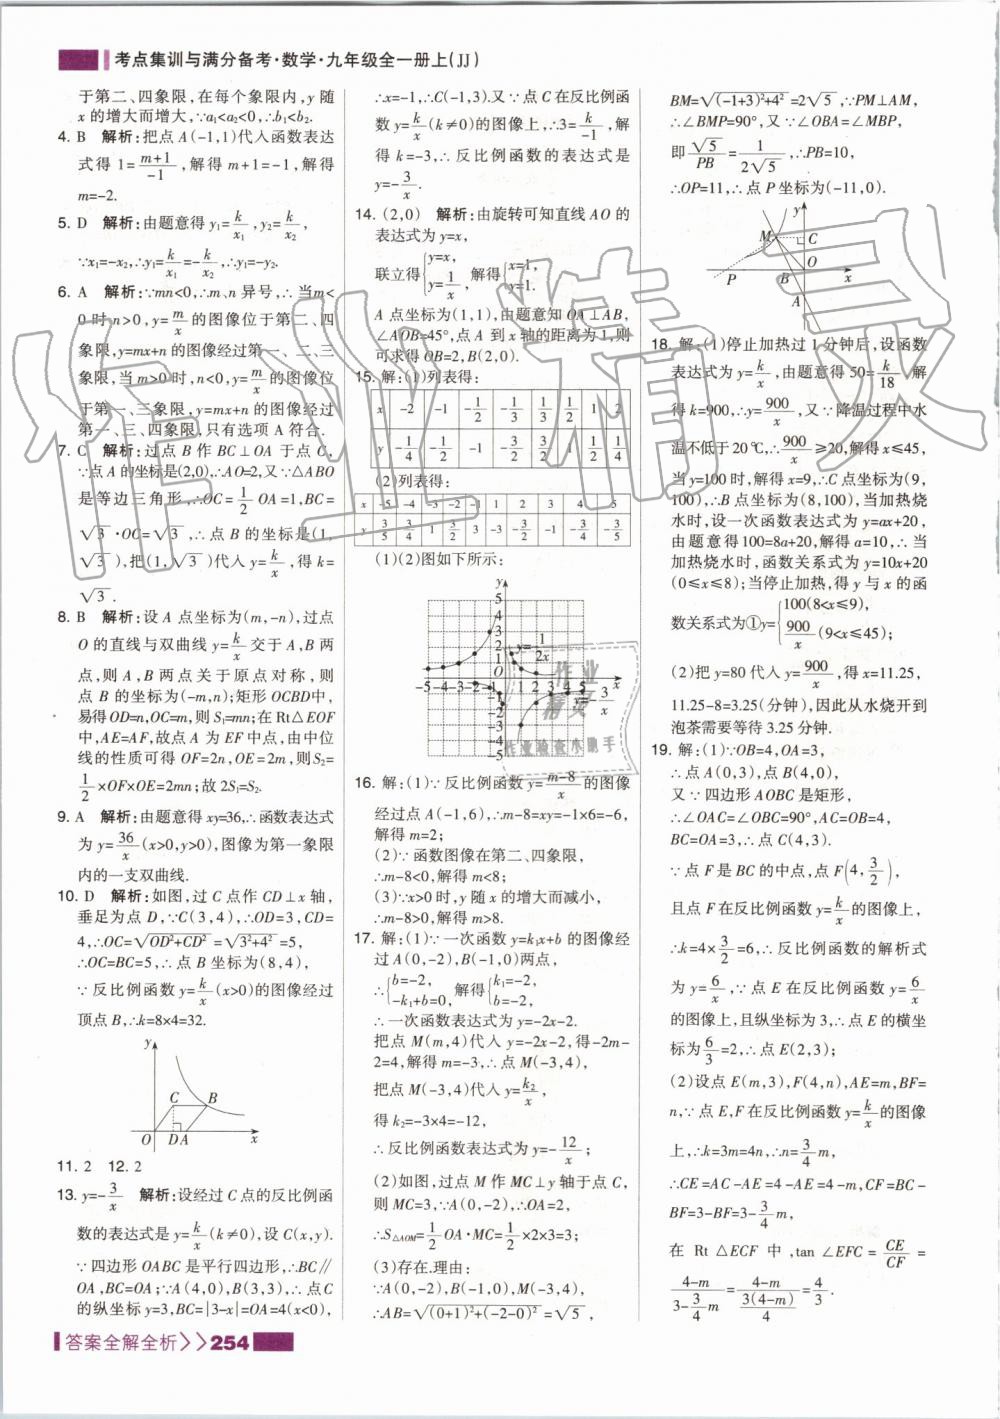 考点集训与满分备考·数学·九年级全一册上(JJ)
于第二、四象限,在每个象限内,y随
x的增大而增大,∵a₁<a₂<0,∴b₁<b₂.
4. B 解析:把点A(-1,1)代入函数表达
式得1=(m+1)/(-1),解得m+1=-1,解得
m=-2.
5. D 解析:由题意得y₁=k/x₁,y₂=k/x₂,
∵x₁=-x₂,∴y₁=k/x₁=-k/x₂,∴y₁=-y₂.
6. A 解析:∵mn<0,∴m、n异号,∴当m<
0时n>0,y=m/x的图像位于第二、四
象限,y=mx+n的图像经过第一、二、三
象限,当m>0时,n<0,y=m/x的图像位
于第一、三象限,y=mx+n的图像经过
第一、三、四象限,只有选项A符合.
7. C 解析:过点B作BC⊥OA于点C,
∵点A的坐标是(2,0),∴AO=2,又∵△ABO
是等边三角形,∴OC=1/2 OA=1,BC=
√3·OC=√3,∴点B的坐标是(1,
√3),把(1,√3)代入y=k/x,得k=
√3.
8. B 解析:设A点坐标为(m,-n),过点
O的直线与双曲线y=k/x交于A,B两
点,则A,B两点关于原点对称,则
点B的坐标为(-m,n);矩形OCBD中,
易得OD=n,OC=m,则S₁=mn;在Rt△EOF
中,AE=AF,故点A为EF中点,由中位
线的性质可得OF=2n,OE=2m,则S₂=
1/2×OF×OE=2mn;故2S₁=S₂.
9. A 解析:由题意得xy=36,∴函数表达式
为y=36/x(x>0,y>0),图像为第一象限
内的一支双曲线.
10. D 解析:如图,过C点作CD⊥x轴,
垂足为点D,∵C(3,4),∴OD=3,CD=
4,∴OC=√(OD²+CD²)=√(3²+4²)=5,
∴OC=BC=5,∴点B坐标为(8,4),
∵反比例函数y=k/x(x>0)的图像经过
顶点B,∴k=8×4=32.
y
C B
O D A x
11. 2 12. 2
13. y=-3/x 解析:设经过C点的反比例函
数的表达式是y=k/x(k≠0),设C(x,y).
∵四边形OABC是平行四边形,∴BC∥
OA,BC=OA;∵A(4,0),B(3,3),∴点C
的纵坐标y=3,BC=|3-x|=OA=4(x<0),
∴x=-1,∴C(-1,3).又∵点C在反比例函
数y=k/x(k≠0)的图像上,∴3=k/(-1),解
得k=-3,∴反比例函数的表达式是
y=-3/x.
14. (2,0) 解析:由旋转可知直线AO的
表达式为y=x,
联立得{y=x, y=1/x, 解得{x=1, y=1.
A点坐标为(1,1),由题意知OA⊥AB,
∠AOB=45°,点A到x轴的距离为1,则
可求得OB=2,B(2,0).
15. 解:(1)列表得:
x -2 -1 -1/2 -1/3 1/3 1/2 1 2
y -1/4 -1/2 -1 -3/2 3/2 1 1/2 1/4
(2)列表得:
x -5 -4 -3 -2 -1 1 2 3 4 5
y 3/5 3/4 1 3/2 3 -3 -3/2 -1 -3/4 -3/5
(1)(2)图如下所示:
y
5
4
3
2
1
y=1/2x
-5 -4 -3 -2 -1 O 1 2 3 4 5 x
-1
-2
-3
-4
-5
y=-3/x
16. 解:(1)∵反比例函数y=(m-8)/x的图像
经过点A(-1,6),∴m-8=xy=-1×6=-6,
解得m=2;
(2)∵函数图像在第二、四象限,
∴m-8<0,解得m<8;
(3)∵x>0时,y随x的增大而减小,
∴m-8>0,解得m>8.
17. 解:(1)∵一次函数y=k₁x+b的图像经
过A(0,-2),B(-1,0)两点,
∴{b=-2, -k₁+b=0, 解得{k₁=-2, b=-2,
∴一次函数表达式为y=-2x-2.
把点M(m,4)代入y=-2x-2,得-2m-
2=4,解得m=-3,∴点M(-3,4),
把点M(-3,4)代入y=k₂/x,
得k₂=-3×4=-12,
∴反比例函数表达式为y=-12/x;
(2)如图,过点M作MC⊥y轴于点C,
则MC=3,∵A(0,-2),∴OA=2,
∴S△AOM=1/2 OA·MC=1/2×2×3=3;
(3)存在.理由:
∵A(0,-2),B(-1,0),M(-3,4),
∴AB=√((0+1)²+(-2-0)²)=√5,
BM=√((-1+3)²+4²)=2√5,∵PM⊥AM,
∴∠BMP=90°,又∵∠OBA=∠MBP,
即√5/PB=1/2√5,∴PB=10,
∴OP=11,∴点P坐标为(-11,0).
y
M C
O
P B x
A
18. 解:(1)停止加热过1分钟后,设函数
表达式为y=k/x,由题意得50=k/18,解
得k=900,∴y=900/x,又∵降温过程中水
温不低于20℃,∴900/x≥20,解得x≤45,
当y=100时,解得x=9,∴C点坐标为(9,
100),∴B点坐标为(8,100),当加热烧
水时,设一次函数表达式为y=ax+20,
由题意得100=8a+20,解得a=10,∴当
加热烧水时,函数关系式为y=10x+20
(0≤x≤8);当停止加热,得y与x的函
数关系式为①y={100(8<x≤9), 900/x(9<x≤45);
(2)把y=80代入y=900/x,得x=11.25,
11.25-8=3.25(分钟),因此从水烧开到
泡茶需要等待3.25分钟.
19. 解:(1)∵OB=4,OA=3,
∴点A(0,3),点B(4,0),
又∵四边形AOBC是矩形,
∴∠OAC=∠OBC=90°,AC=OB=4,
BC=OA=3,∴点C(4,3).
∵点F是BC的中点,点F(4,3/2),
且点F在反比例函数y=k/x的图像上,
∴k=4×3/2=6,∴反比例函数的解析式
为y=6/x,∵点E在反比例函数y=6/x
的图像上,且纵坐标为3,∴点E的横坐
标为6/3=2,∴点E(2,3);
(2)设点E(m,3),F(4,n),AE=m,BF=
n,∵点E,F在反比例函数y=k/x的图像
上,∴k=3m=4n,∴n=3/4m,
∴CE=AC-AE=4-AE=4-m,CF=BC-
BF=3-BF=3-3/4m,
在Rt△ECF中,tan∠EFC=CE/CF=
(4-m)/(3-3/4m)=(4-m)/(3(4-m)/4)=4/3.
答案全解全析>>254
作业精灵
作业
精灵
作业检查小助手